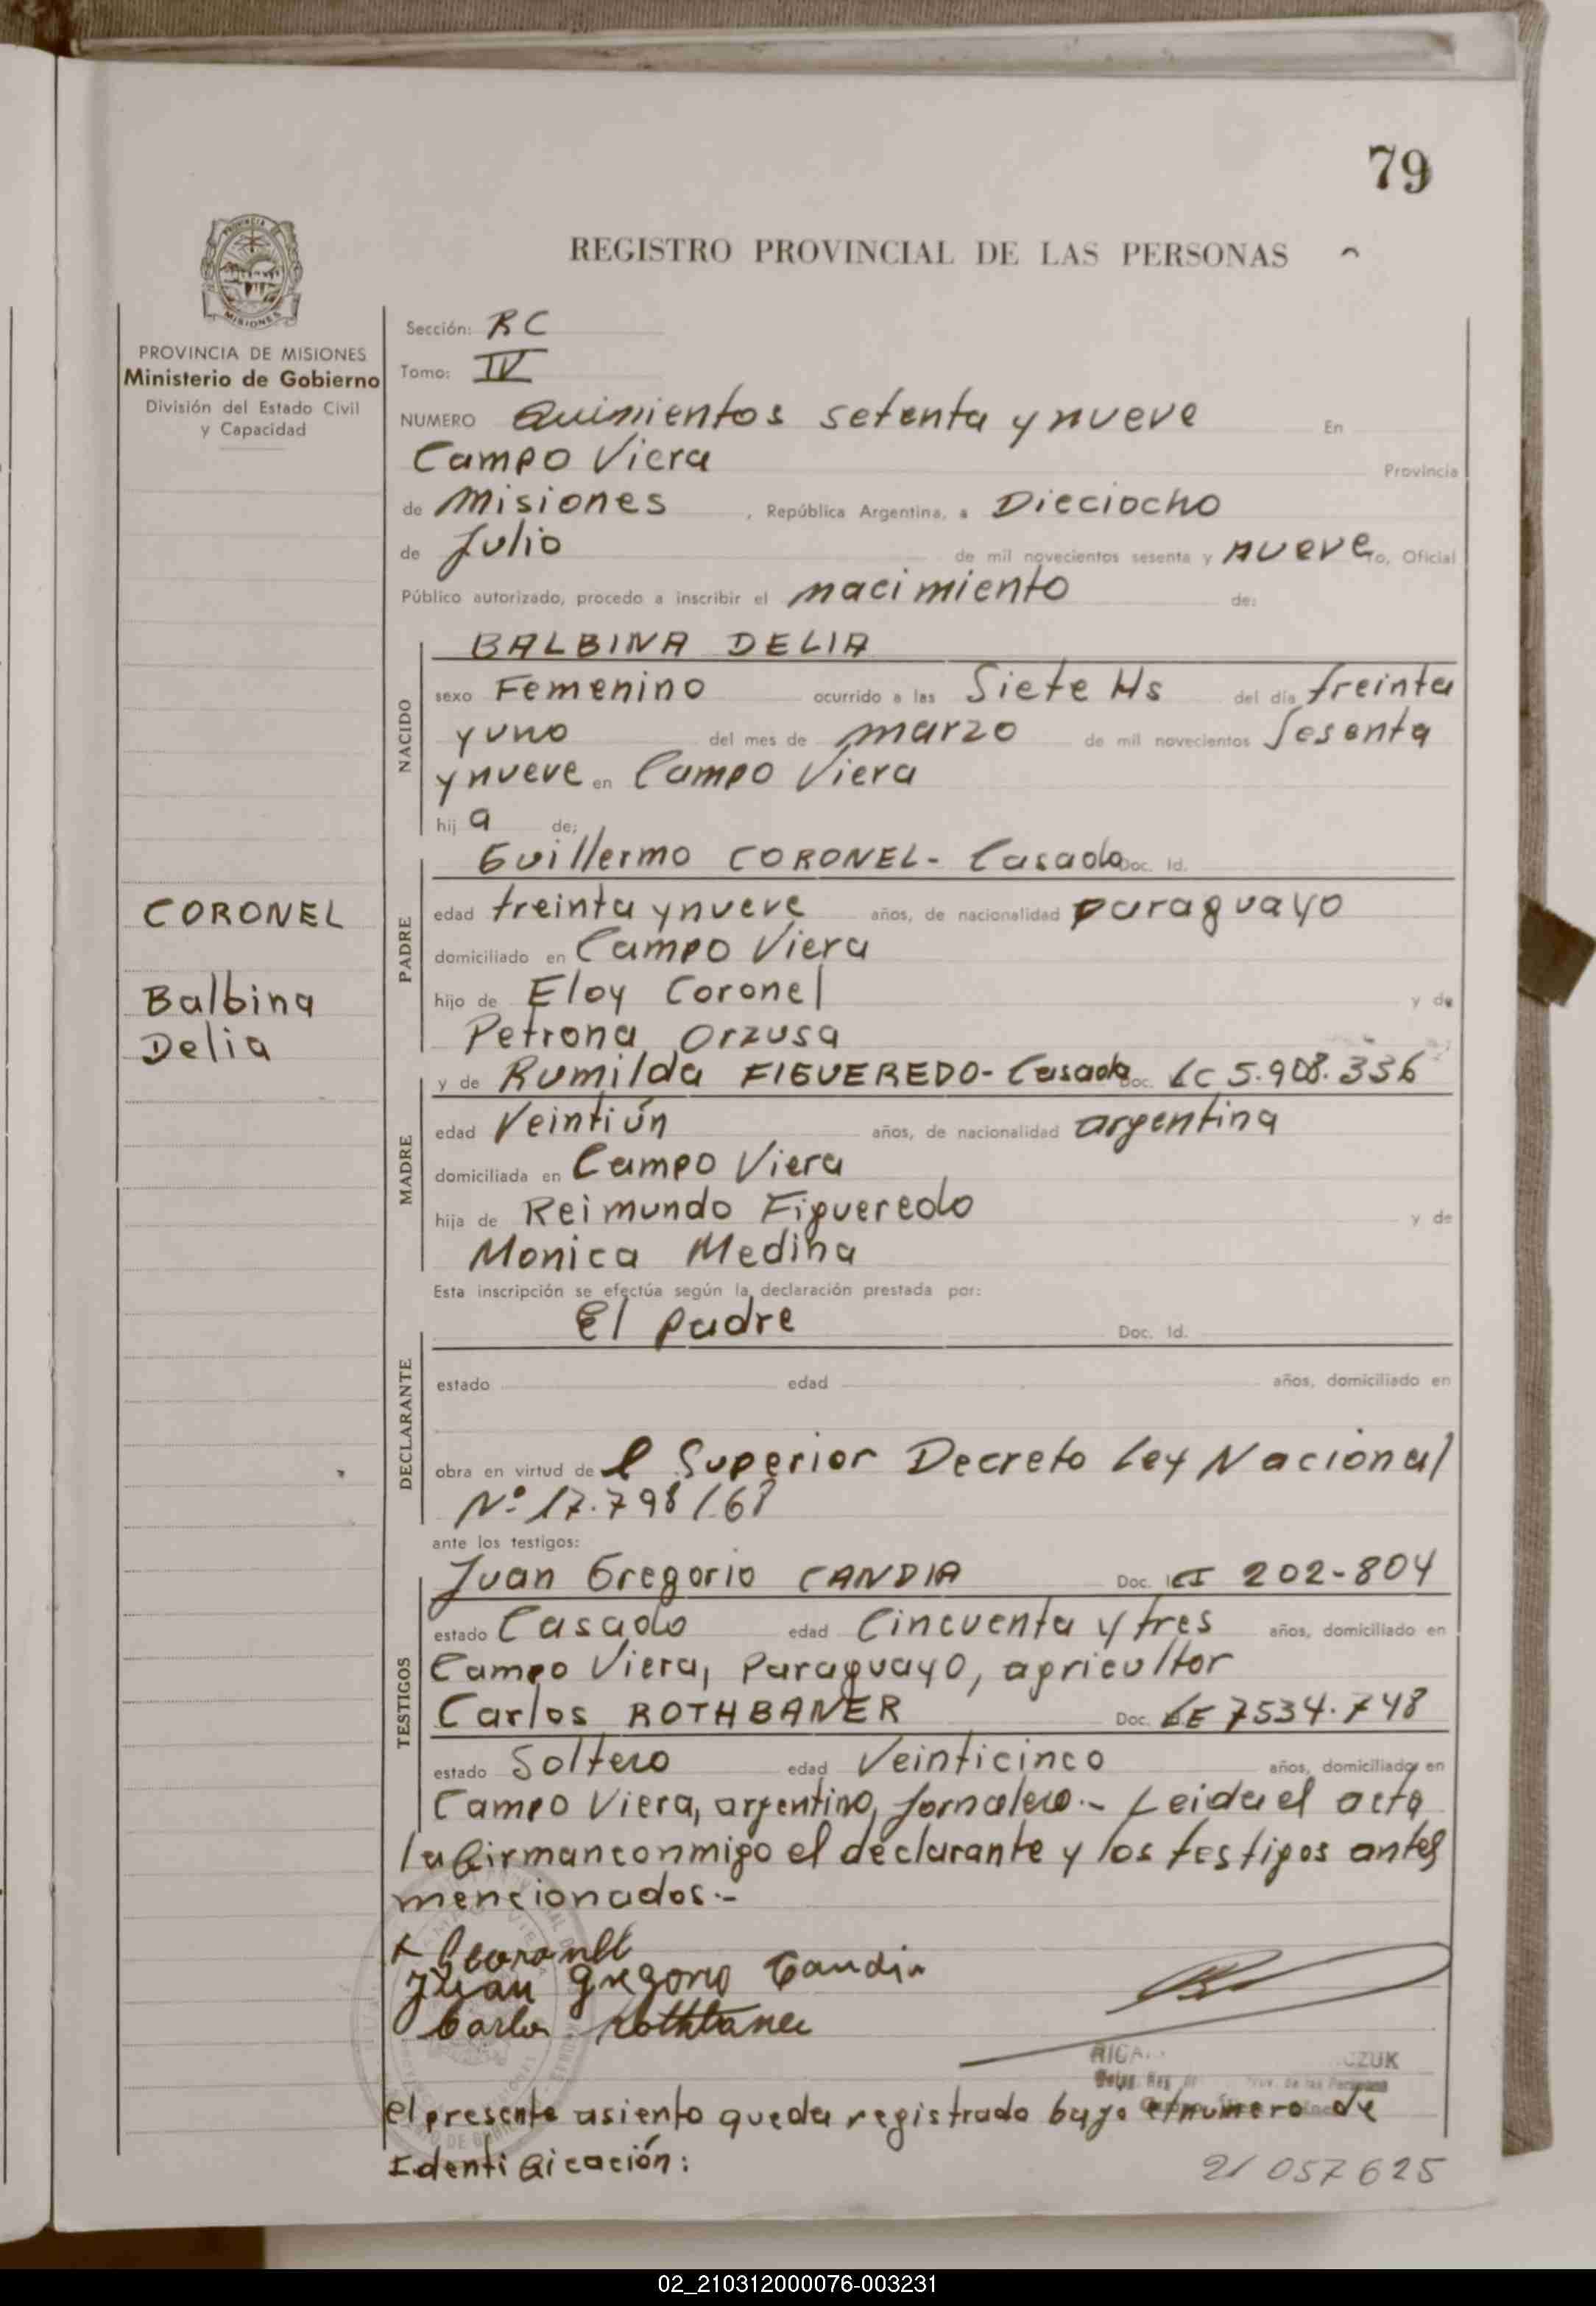 79
REGISTRO PROVINCIAL DE LAS PERSONAS
PROVINCIA DE MISIONES
Ministerio de Gobierno
División del Estado Civil
y Capacidad
CORONEL
Balbina
Delia
Sección: RC
Tomo: IV
NUMERO Quinientos setenta y nueve En
Campo Viera Provincia
de Misiones , República Argentina, a Dieciocho
de Julio de mil novecientos sesenta y nueve, Oficial
Público autorizado, procedo a inscribir el nacimiento de:
NACIDO
BALBINA DELIA
sexo Femenino ocurrido a las Siete Hs del día treinta
y uno del mes de marzo de mil novecientos Sesenta
y nueve en Campo Viera
hij a de:
PADRE
Guillermo CORONEL- Casado Doc. Id.
edad treinta y nueve años, de nacionalidad paraguayo
domiciliado en Campo Viera
hijo de Eloy Coronel y de
Petrona Orzusa
MADRE
y de Rumilda FIGUEREDO- Casada Doc. LC 5.908.336
edad Veintiún años, de nacionalidad argentina
domiciliada en Campo Viera
hija de Reimundo Figueredo y de
Monica Medina
Esta inscripción se efectúa según la declaración prestada por:
DECLARANTE
El padre Doc. Id.
estado edad años, domiciliado en
obra en virtud de l Superior Decreto Ley Nacional
Nº 17.798/68
ante los testigos:
TESTIGOS
Juan Gregorio CANDIA Doc. CI 202-804
estado Casado edad Cincuenta y tres años, domiciliado en
Campo Viera, Paraguayo, agricultor
Carlos ROTHBANER Doc. LE 7534.748
estado Soltero edad Veinticinco años, domiciliado en
Campo Viera, argentino, Jornalero.- Leida el acta
la firman conmigo el declarante y los testigos antes
mencionados.-
Juan Gregorio Candia
Carlos Rothbaner
el presente asiento queda registrado bajo el numero de
Identificación: 21 057625
02_210312000076-003231